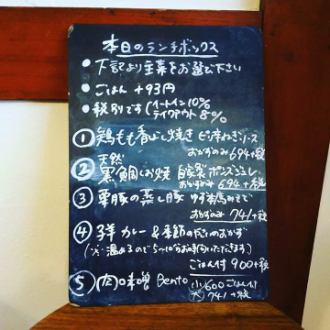 本日のランチボックス
● 下記より主菜をお選び下さい
● ごはん +93円
● 税別です(イートイン10%
テイクアウト 8%
① 鶏もも香ばし焼き ピリ辛ねぎソース
おかずのみ 694+税
② 天然
黒鯛しお焼 自家製ポンズジュレ
おかずのみ 694+税
③ 栗豚の蒸し豚
おかずのみ 741+税
④ カレー & 季節のおかず
ごはん付 900+税
⑤ 肉味噌 Bento 小600 ごはん付
大 741+税